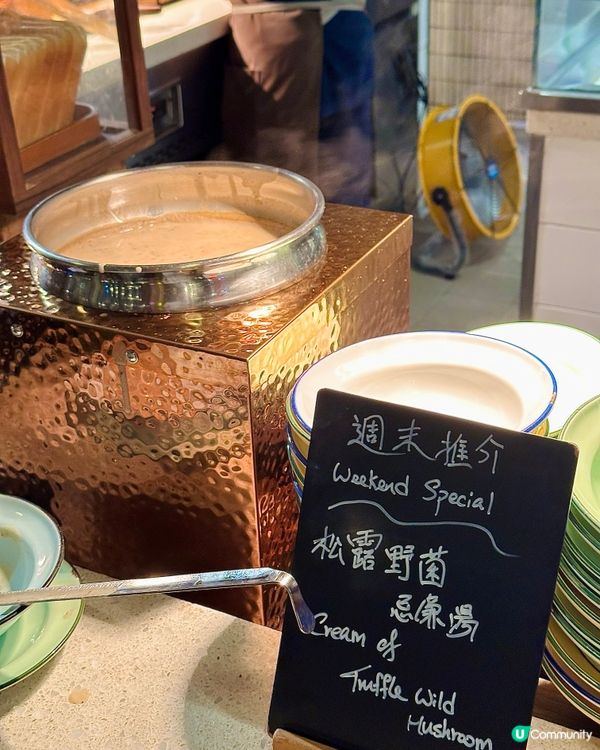 週末推介
Weekend Special
松露野菌
忌廉湯
Cream of
Truffle Wild
Mushroom
U Community